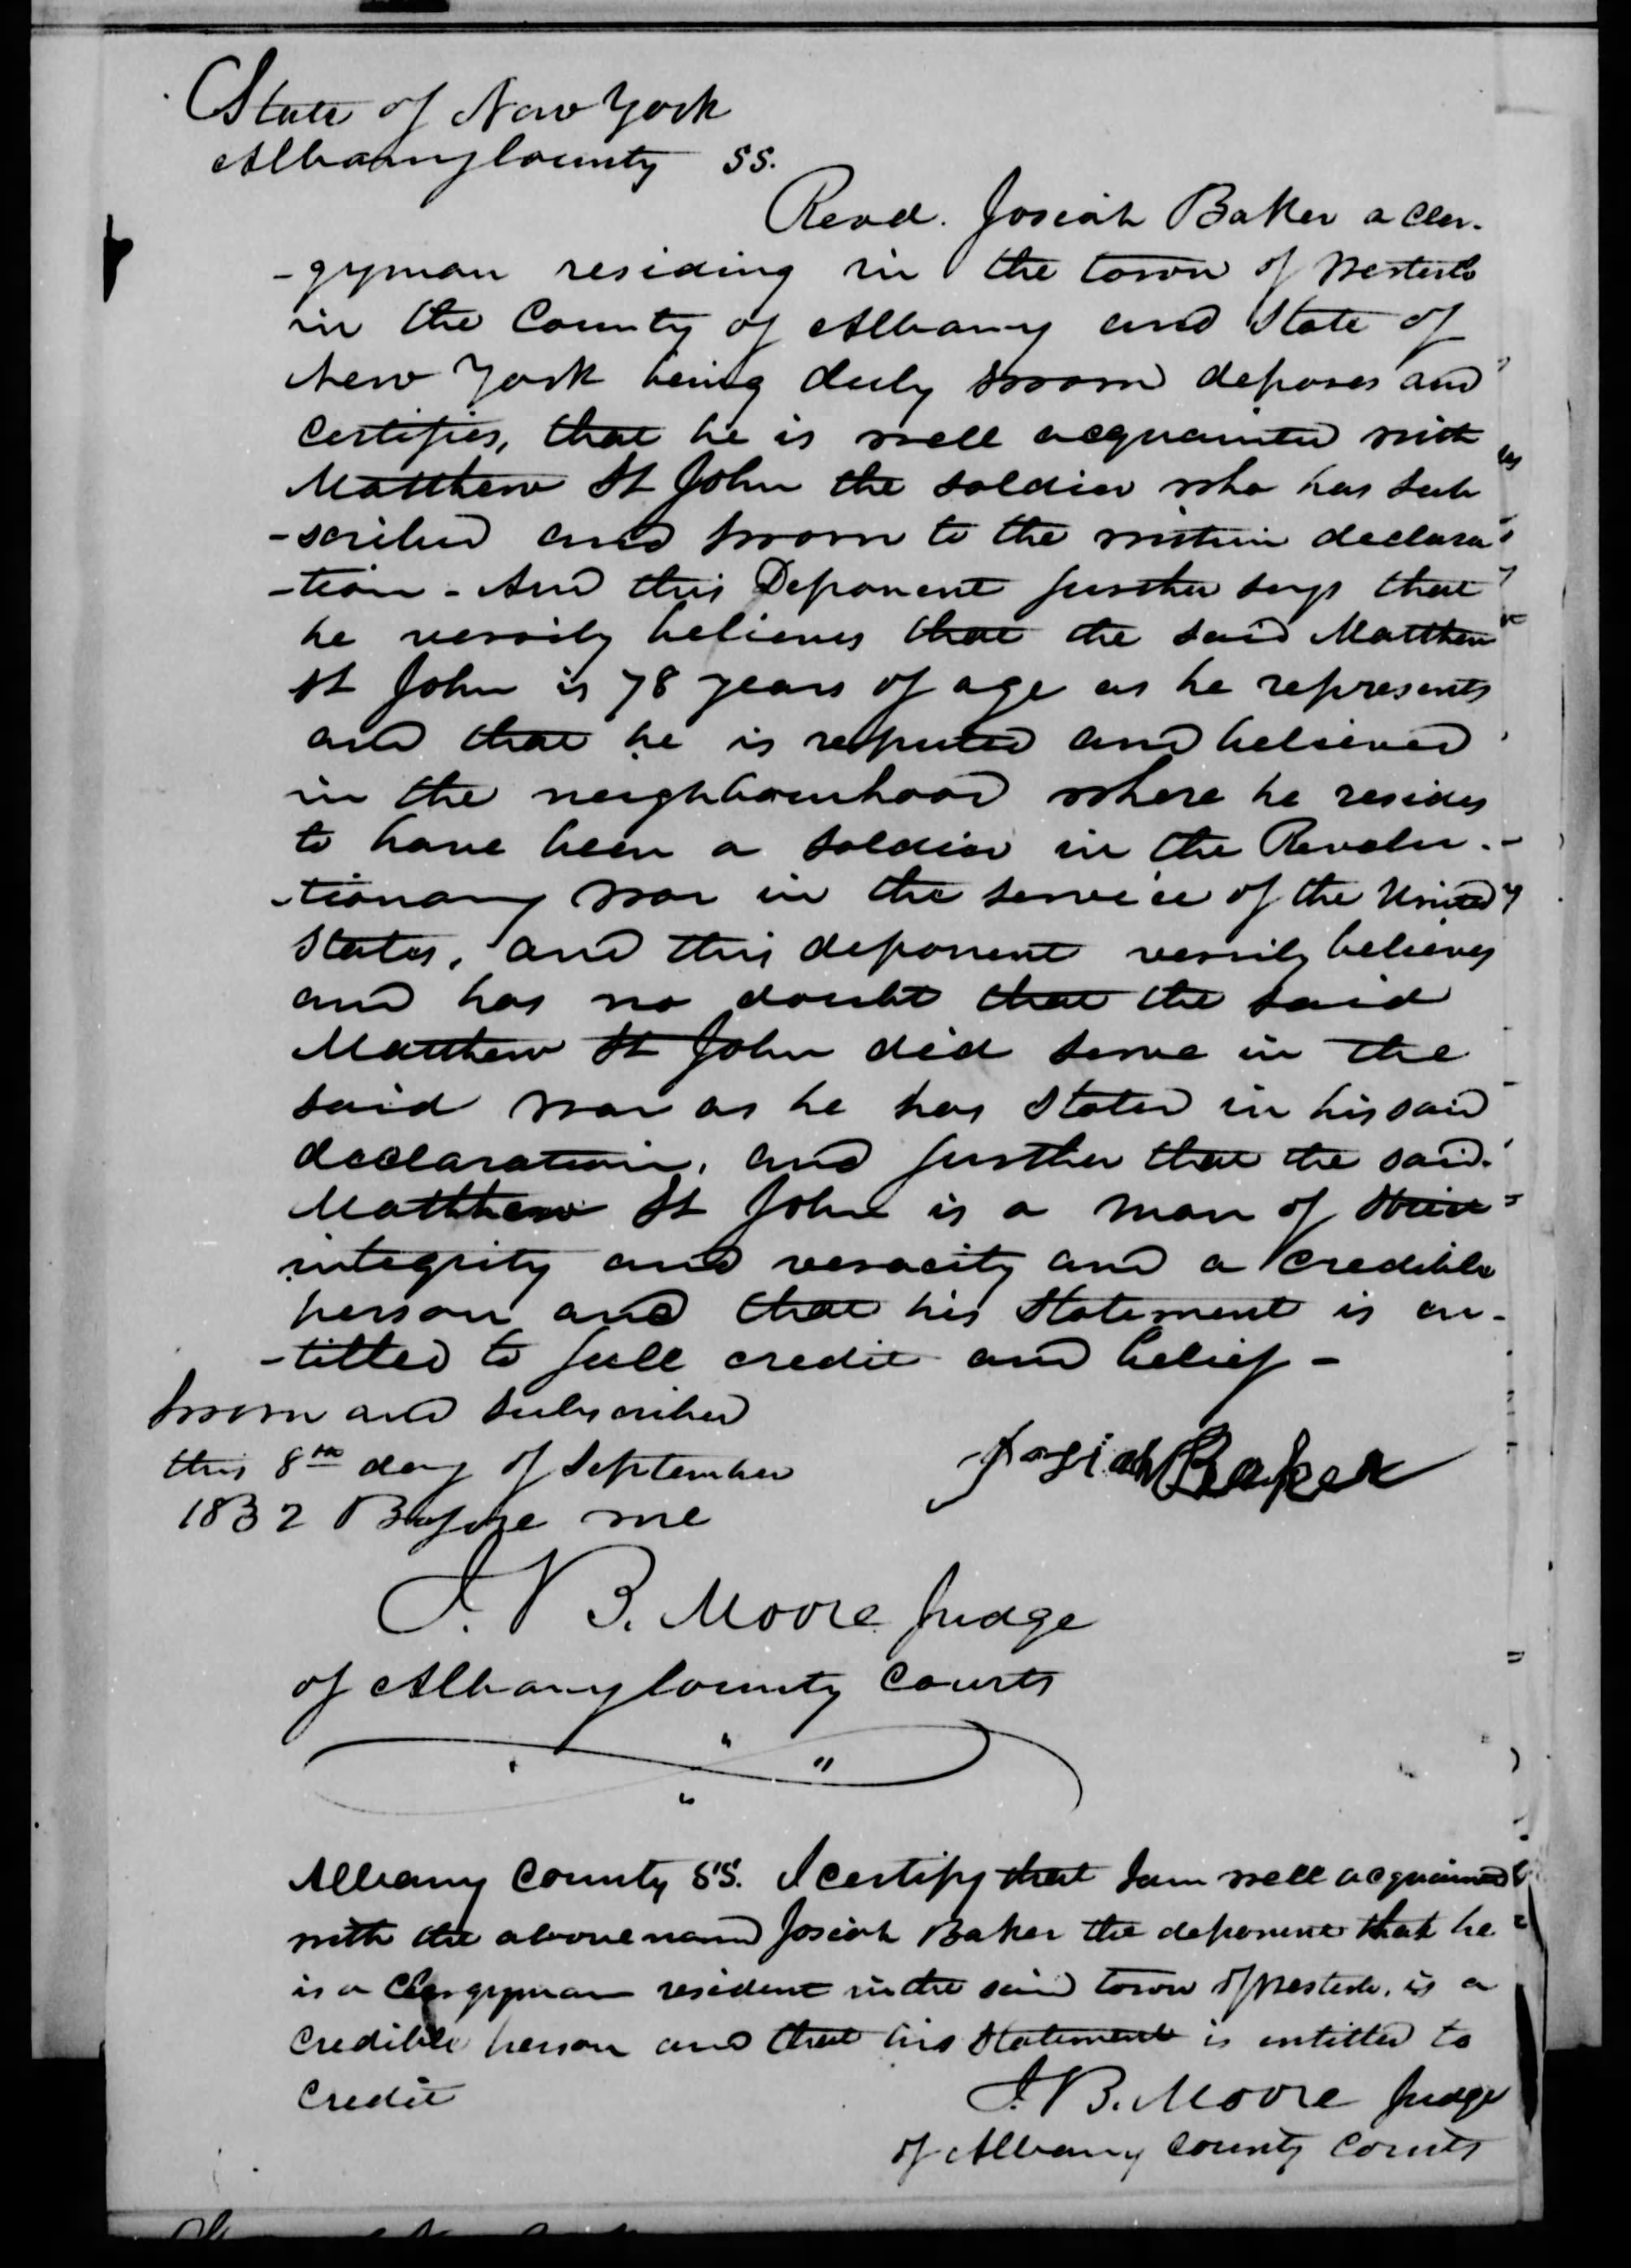 State of New York
Albany County SS.
Revd. Josiah Baker a cler-
-gyman residing in the town of Westerlo
in the County of Albany and State of
New York being duly sworn deposes and
certifies, that he is well acquainted with
Matthew St John the soldier who has sub
-scribed and sworn to the within declara
-tion - And this Deponent further says that
he verrily believes that the said Matthew
St John is 78 years of age as he represents
and that he is reputed and believed
in the neighbourhood where he resides
to have been a soldier in the Revolu-
-tionary war in the service of the United
States, and this deponent verrily believes
and has no doubt that the said
Matthew St John did serve in the
said war as he has stated in his said
declaration, and further that the said
Matthew St John is a man of strict
integrity and veracity and a credible
person and that his statement is en-
-titled to full credit and belief -
Sworn and subscribed
this 8th day of September
1832 Before me
Josiah Baker
J. B. Moore Judge
of Albany County Courts
Albany County SS. I certify that I am well acquainted
with the above named Josiah Baker the deponent that he
is a Clergyman resident in the said town of Westerlo, is a
credible person and that his statement is entitled to
credit
J. B. Moore Judge
of Albany County Courts